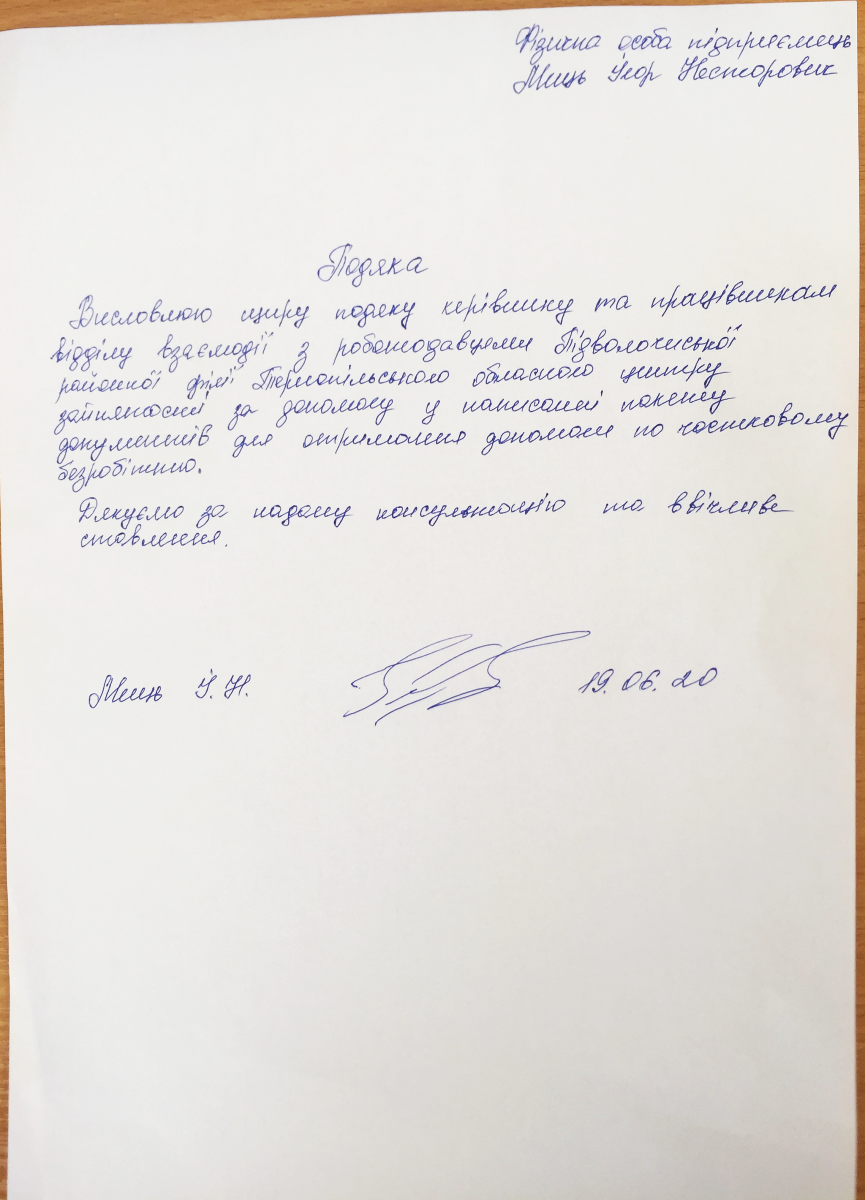 Фізична особа підприємець
Миць Ігор Несторович
Подяка
Висловлюю щиру подяку керівнику та працівникам
відділу взаємодії з роботодавцями Підволочиської
районної філії Тернопільського обласного центру
зайнятості за допомогу у написанні пакету
документів для отримання допомоги по частковому
безробіттю.
Дякуємо за надану консультацію та ввічливе
ставлення.
Миць І. Н. 19.06.20